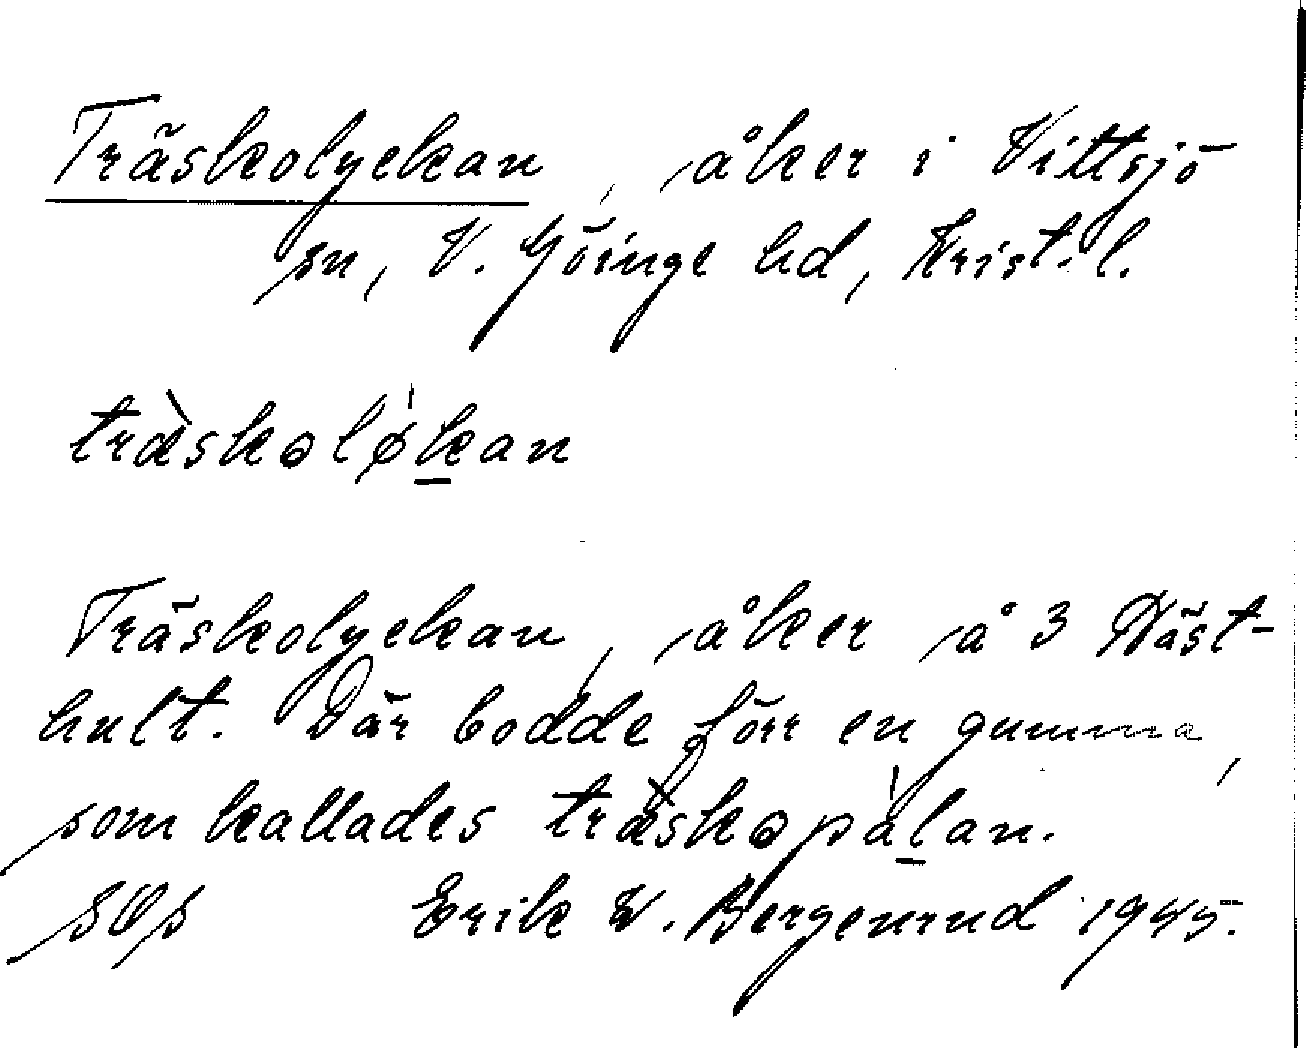 Träskolyckan, åker i Vittsjö
sn, V. Göinge hd, Krist. l.
trä̀skoløkan
Träskolyckan, åker å 3 Häst-
hult. Där bodde förr en gumma,
som kallades träskopålan.
Erik W. Bergenrud 1945.